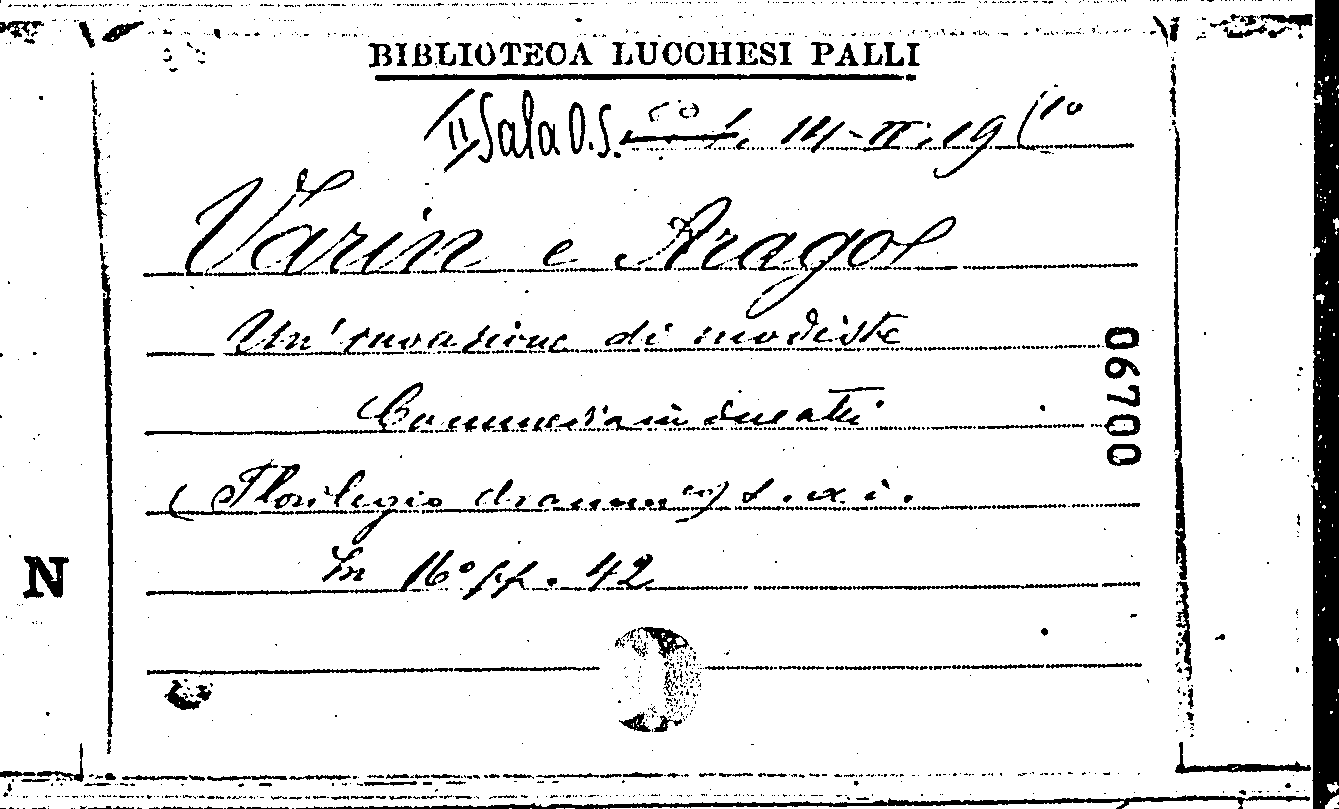 BIBLIOTECA LUCCHESI PALLI
II Sala O.S. 14-II-19 (10
Varin e Arago
Un'invasione di modiste
Commedia in due atti
(Florilegio dramm.co) s. a. i.
In 16° pp. 42
06700
N